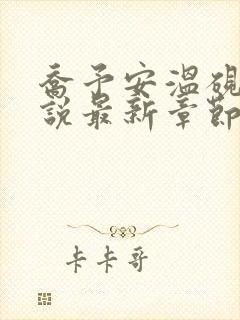 喬予安溫硯
說最新章節
卡卡哥